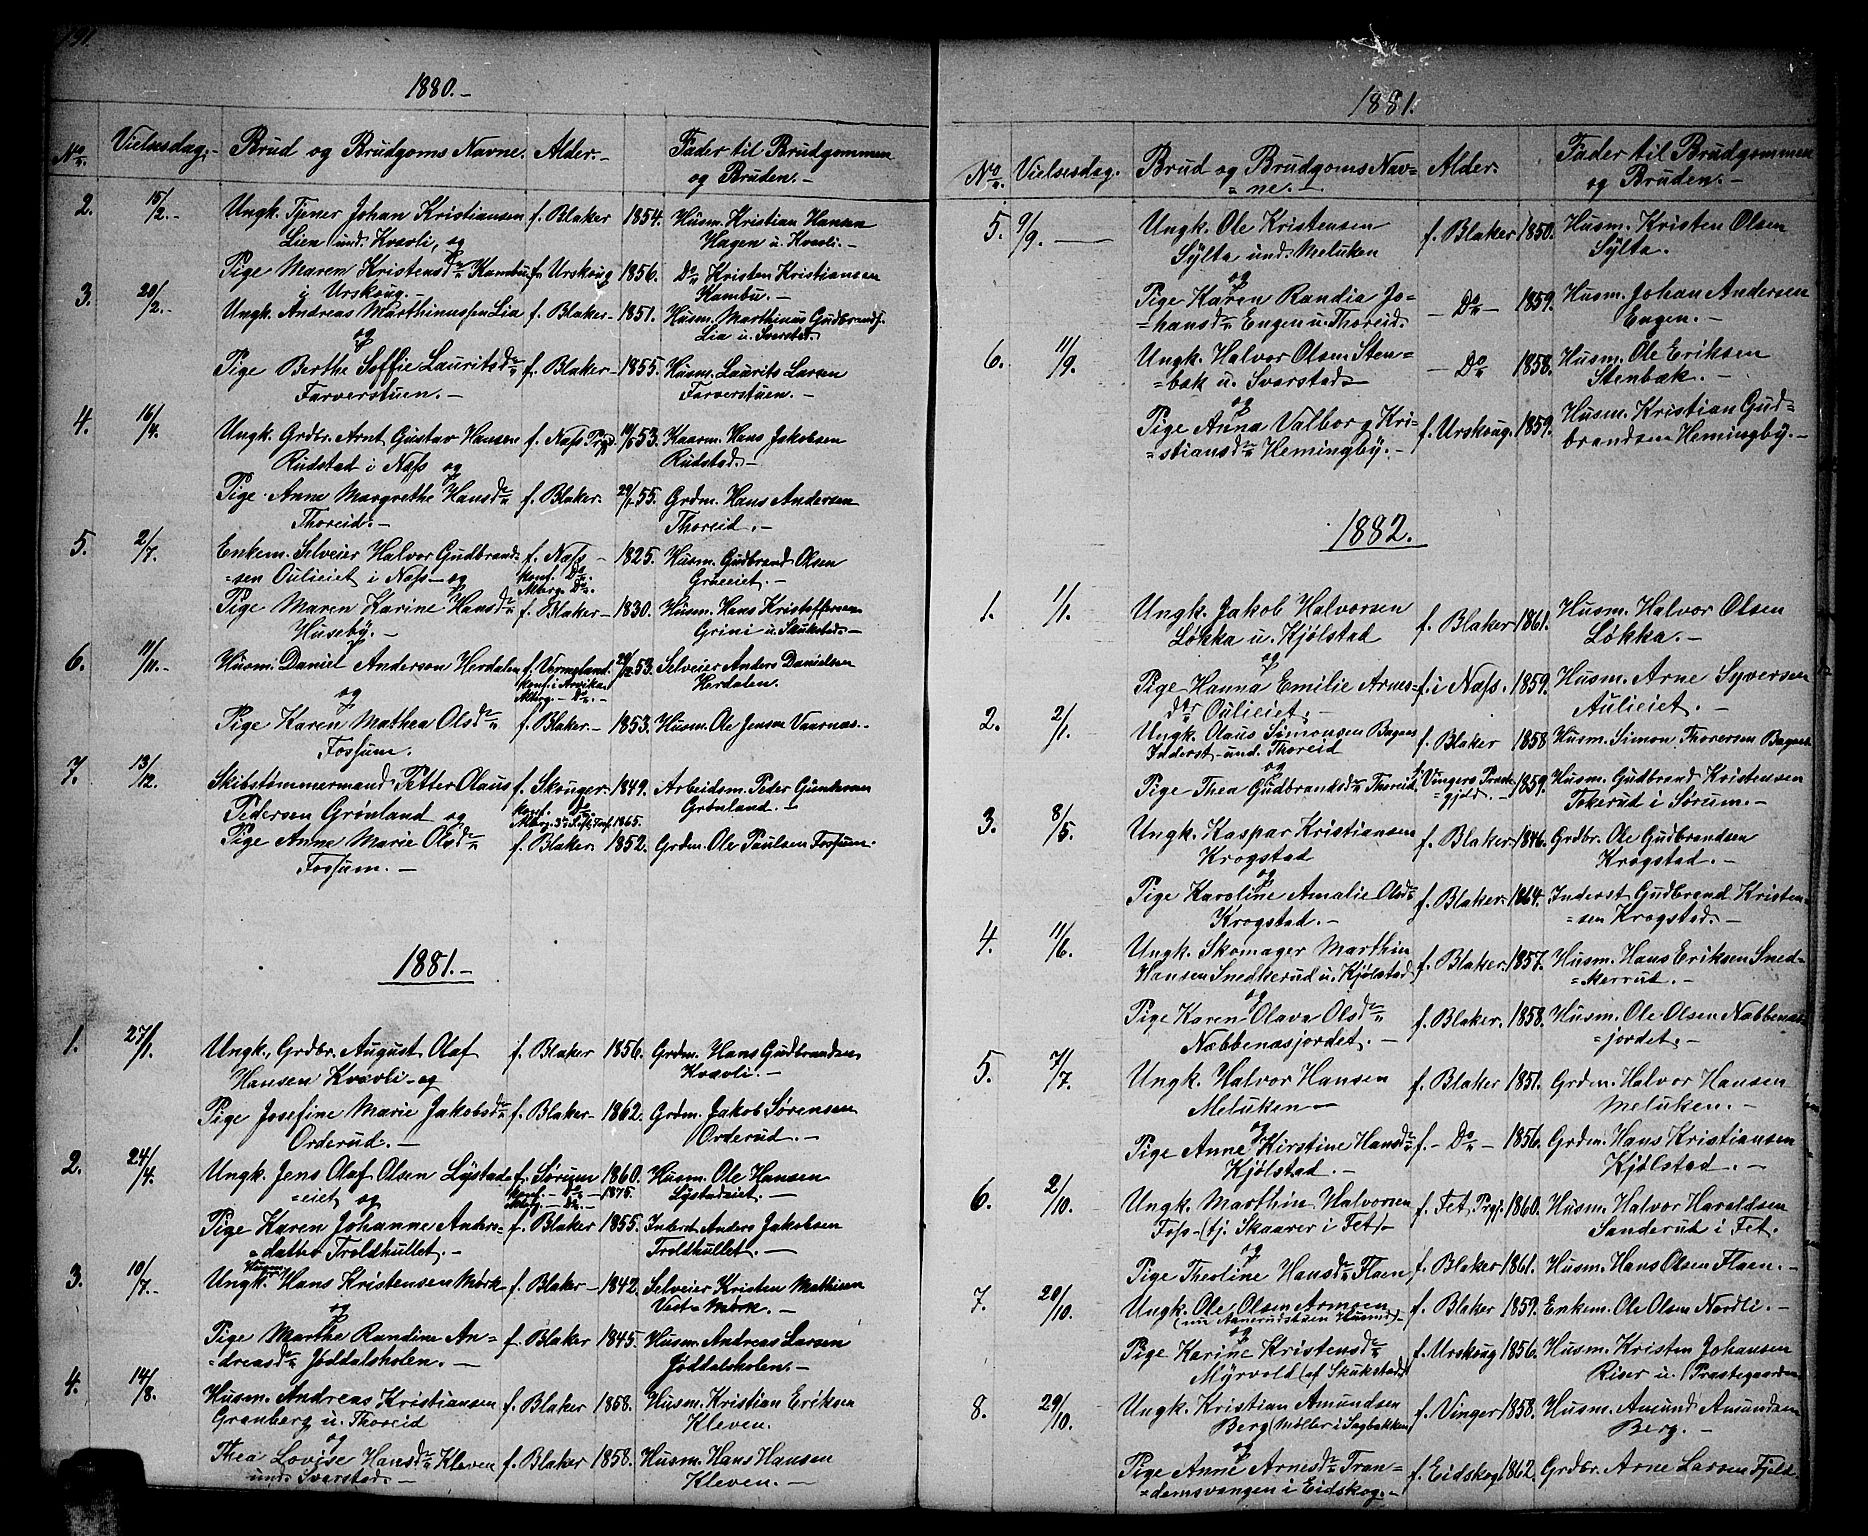 1880.-
No Vielsesdag.- Brud og Brudgoms Navne. Alder.- Fader til Brudgommen
og Bruden.-
2. 15/2.- Ungk. Tjener Johan Kristiansen f. Blaker 1854. Husm. Kristian Hansen
Lien und. Kvævli, og Hagen u. Kvævli.-
Pige Maren Kristensdr Kambu f. Urskoug 1856. Do Kristen Kristiansen
i Urskoug.- Kambu.-
3. 20/2.- Ungk. Andreas Marthinussen Lia f. Blaker- 1851. Husm. Marthinus Gudbrands.
og Lia u. Svarstad.
Pige Berthe Soffie Lauritsdr f. Blaker- 1855. Husm. Laurits Larsen
Farverstuen.- Farverstuen.-
4. 16/4. Ungk. Grdbr. Arnt Gustav Hansen f. Næss Prgd 53. Kaarm. Hans Jakobsen
Rudstad i Næss og Rudstad.-
Pige Anne Margrethe Hansdr f. Blaker. 55. Grdm. Hans Andersen
Thoreid.- Thoreid.-
5. 2/7. Enkem. Selveier Halvor Gudbrand= f. Næss- 1825. Husm. Gudbrand Olsen
=sen Oulieiet i Næss- og konf. Do. Græeiet.-
Atberg. Do.
Pige Maren Karine Hansdr f. Blaker- 1830. Husm. Hans Kristoffersen
Huseby.- Grini u. Skukstad.-
6. 11/11.- Husm. Daniel Anderson Herdalen f. Vermeland. 53. Selveier Anders Danielsen
og konf. i Arvika. Herdalen.
Atberg.- Do.-
Pige Karen Mathea Olsdr f. Blaker- 1853. Husm. Ole Jensen Vaarnæs.-
Fossum.
7. 13/12. Skibstømmermand Petter Olaus f. Skouger- 1849. Arbeidsm. Peder Gundersen
Pedersen Grønland og konf. Do. Grønland.-
1865.
Pige Anne Marie Olsdr f. Blaker. 1852. Grdm. Ole Paulsen Fossum.
Fossum.-
1881.-
1. 27/1. Ungk., Grdbr. August Olaf f. Blaker 1856. Grdm. Hans Gudbrandsen
Hansen Kvævli- og Kvævli.-
Pige Josefine Marie Jakobsdr f. Blaker- 1862. Grdm. Jakob Sørensen
Orderud.- Orderud.-
2. 24/4. Ungk. Jens Olaf Olsen Lystad f. Sørum 1860. Husm. Ole Hansen
=eiet og konf.- Do- 1875. Lystadeiet.-
Atbrg.- Do.-
Pige Karen Johanne Anders= f. Blaker 1855. Inderst Anders Jakobsen
=datter Troldhullet.- Troldhullet.-
3. 10/7.- Ungk. Husm. Hans Kristensen Mørk f. Blaker- 1842. Selveier Kristen Mathisen
og Vest- Mørk.-
Pige Marthe Randine An= f. Blaker 1845. Husm. Andreas Larsen
=dreasdr Jøddalsholen.- Jøddalsholen.-
4. 14/8. Husm. Andreas Kristiansen f. Blaker 1858. Husm. Kristian Eriksen
Granberg u. Thoreid Kleven.
og
Thea Lovise Hansdr Kleven f. Blaker 1858. Husm. Hans Hansen
und. Svarstad.- Kleven.-
1881.
No Vielsesdag. Brud og Brudgoms Nav= Alder. Fader til Brudgommen
=ne.- og Bruden.-
5. 9/9.- Ungk. Ole Kristensen f. Blaker 1850. Husm. Kristen Olsen
Sylta und. Meluken Sylta.
og
Pige Karen Randia Jo= - Do- 1859. Husm. Johan Andersen
=hansdr Engen u. Thoreid. Engen.-
6. 11/9. Ungk. Halvor Olsen Sten= - Do 1858. Husm. Ole Eriksen
=bæk u. Svarstad Stenbæk.-
og
Pige Anna Valborg Kri= f. Urskoug. 1859. Husm. Kristian Gud=
=stiansdr Hemingby.- brandsen Hemingby.-
1882.
1. 1/1. Ungk. Jakob Halvorsen f. Blaker 1861. Husm. Halvor Olsen
Løkka u. Kjølstad Løkka.-
og
Pige Hanna Emilie Arnes= f. i Næss. 1859. Husm. Arne Syversen
dtr Oulieiet.- Aulieiet.-
2. 2/1. Ungk. Olaus Simonsen Bagaas f. Blaker 1858 Husm. Simon Thoresen Bagaas.
Inderst und. Thoreid
og
Pige Thea Gudbrandsdr Thoreid f. Vingers Præste 1859. Husm. Gudbrand Kristensen
gjeld.- Tokerud i Sørum.-
3. 8/5. Ungk. Kaspar Kristiansen f. Blaker 1846. Grdbr. Ole Gudbrandsen
Krogstad Krogstad.-
og
Pige Karoline Amalie Olsdr f. Blaker. 1864. Inderst Gudbrand Kristen=
Krogstad.- =sen Krogstad.-
4. 11/6. Ungk. Skomager Marthin f. Blaker. 1857. Husm. Hans Eriksen Sned=
Hansen Snedkerud u. Kjølstad =kerrud.-
og
Pige Karen Olava Olsdr f. Blaker. 1858. Husm. Ole Olsen Næbbenæs=
Næbbenæsjordet.- =jordet.-
5. 7/7. Ungk. Halvor Hansen f. Blaker 1851. Grdm. Halvor Hansen
Meluken- Meluken.-
og
Pige Anne Kirstine Hansdr f.- Do- 1856. Grdm. Hans Kristiansen
Kjølstad.- Kjølstad.-
6. 2/10. Ungk. Marthin Halvorsen f. Fet Prgj. 1860. Husm. Halvor Haraldsen
Foss- (tj. Skaarer i Fet)- Sanderud i Fet.
og
Pige Theoline Hansdr Flaen f. Blaker 1861. Husm. Hans Olsen Flaen.-
7. 20/10. Ungk. Ole Olsen Armoen f. Blaker 1859. Enkem. Ole Olsen Nordli.-
(nu Aanerudstuen Husmd)-
og
Pige Karine Kristensdr f. Urskoug 1856. Husm. Kristen Johansen
Myrvold (af Skukstad) Riser u. Præstegaarden
8. 29/10. Ungk. Kristian Amundsen f. Vinger 1858. Husm. Amund Amundsen
Berg (Møller i Sagbakken) Berg.-
og
Pige Anne Arnesdr Tran= f. Eidskog 1862. Grdbr. Arne Larsen Fjeld
=demsvangen i Eidskog.-